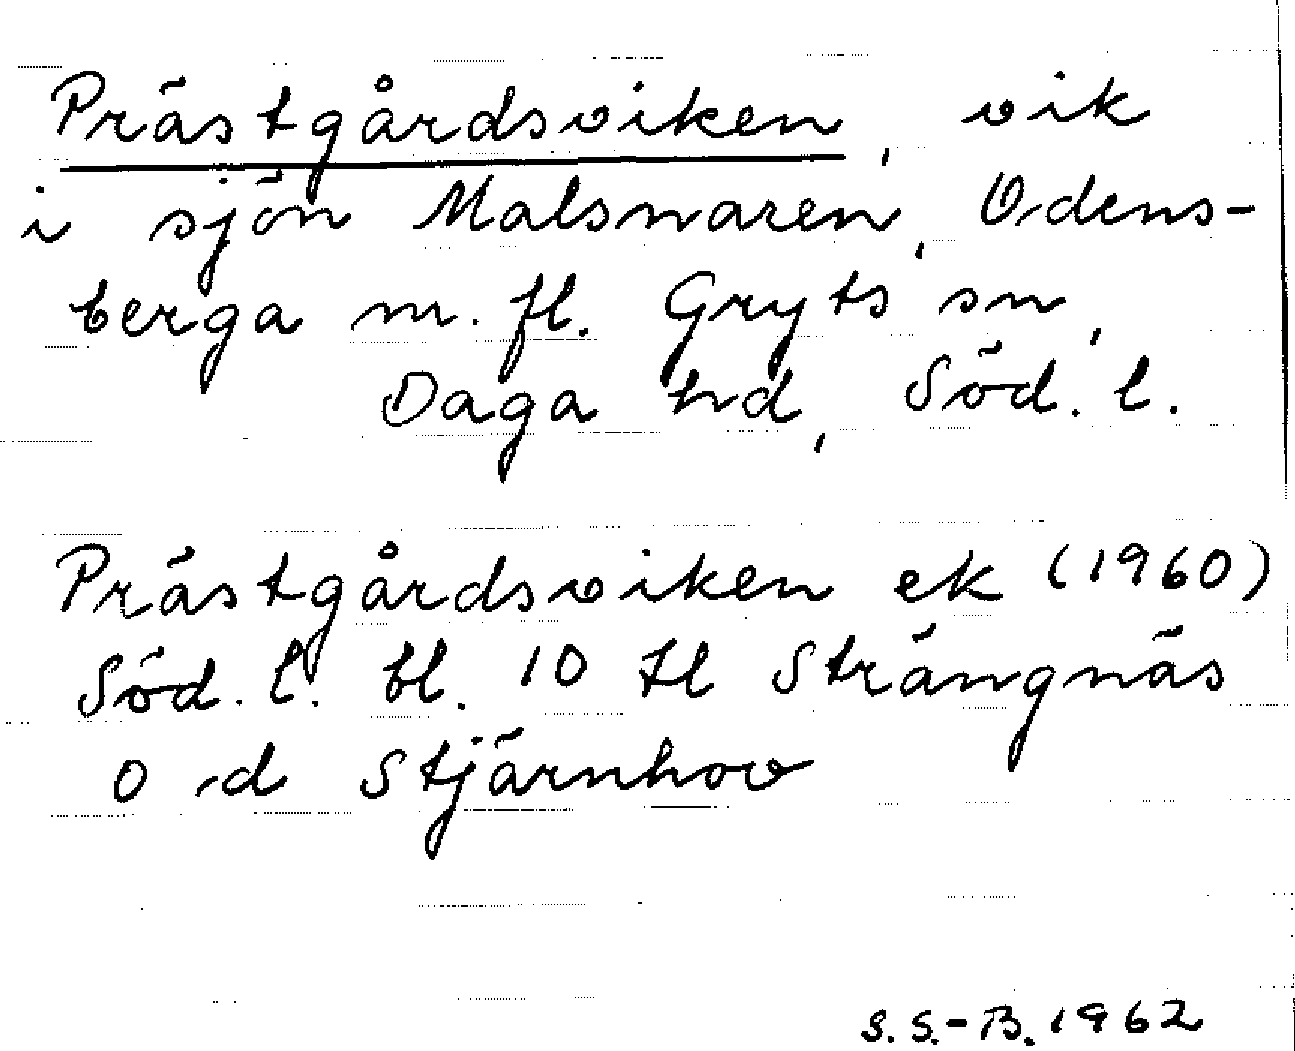 Prästgårdsviken, vik
i sjön Malsnaren, Odens-
berga m. fl. Gryts sn,
Daga hd, Söd. l.
Prästgårdsviken ek (1960)
Söd. l. bl. 10 tl Strängnäs
o -d Stjärnhov
S.S.-B. 1962